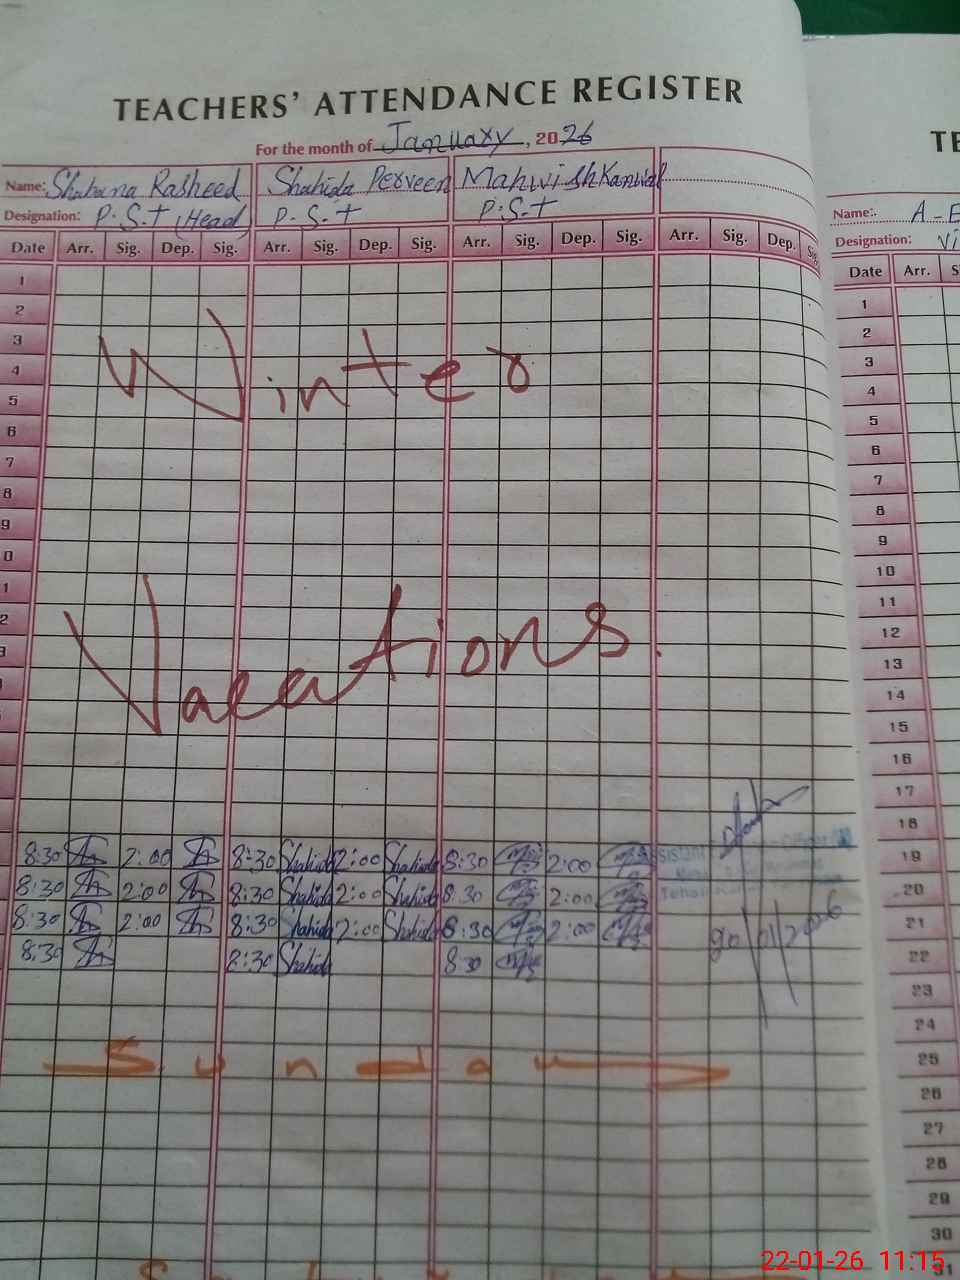 TEACHERS' ATTENDANCE REGISTER
For the month of January, 2026
Name: Shabana Rasheed Shahida Perveen Mahwish Kanwal
Designation: P.S.T (Head) P.S.T P.S.T
Date Arr. Sig. Dep. Sig. Arr. Sig. Dep. Sig. Arr. Sig. Dep. Sig. Arr. Sig. Dep. Sig.
1
2
3
4
5
6
7
8
9
0
1
2
Winter
Vacations.
8:30 2:00 8:30 Shahida 2:00 Shahida 8:30 2:00
8:30 2:00 8:30 Shahida 2:00 Shahida 8:30 2:00
8:30 2:00 8:30 Shahida 2:00 Shahida 8:30 2:00
8:30 2:30 Shahida 8:30
Sunday
TE
Name:. A-E
Designation: Vi
Date Arr. S
1
2
3
4
5
6
7
8
9
10
11
12
13
14
15
16
17
18
19
20
21
22
23
24
25
26
27
28
29
30
31
22-01-26 11:15